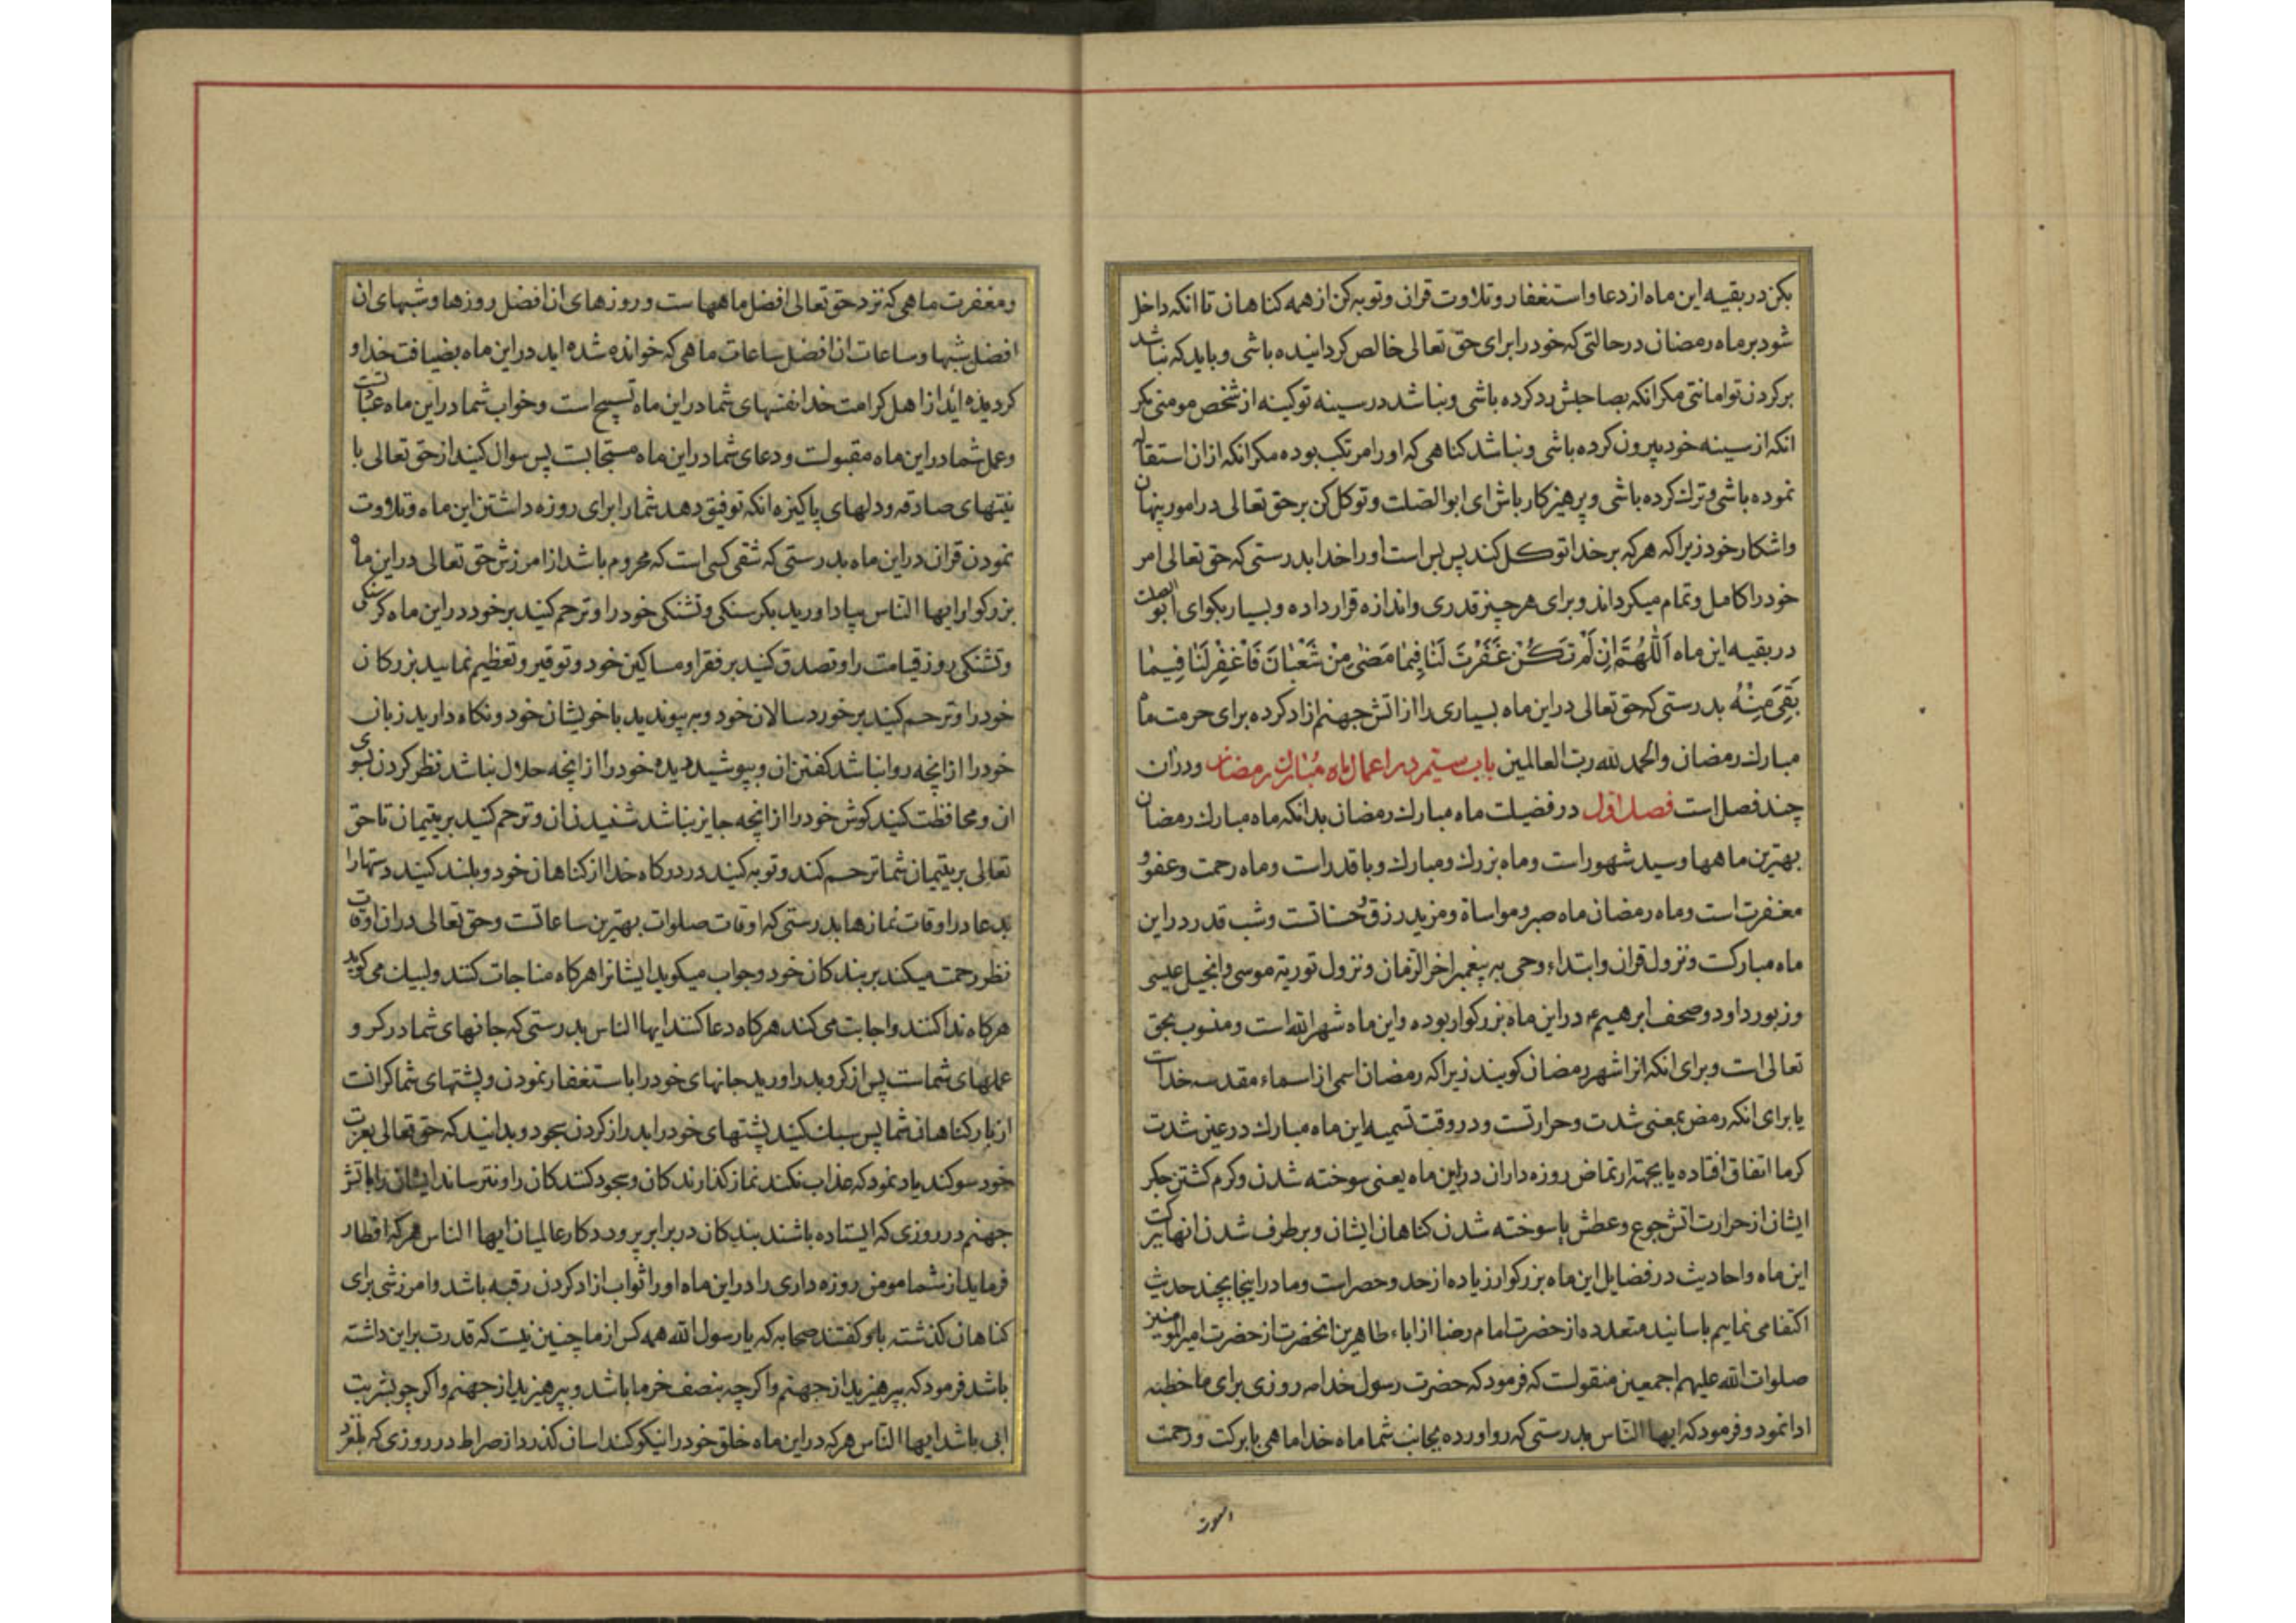 بکن در بقیه این ماه از دعا و استغفار و تلاوت قران و توبه کن از همه کناهان تا انکه داخل
شود بر ماه رمضان در حالتی که خود را برای حق تعالی خالص کردانیده باشی و باید که نباشد
بر کردن تو امانتی مکر انکه بصاحبش رد کرده باشی و نباشد در سینه تو کینه از شخص مومنی مکر
انکه از سینه خود بیرون کرده باشی و نباشد کناهی که او را مرتکب بوده مکر انکه از ان استقاله
نموده باشی و ترك کرده باشی و پرهیزکار باش ای ابوالصلت و توکل کن بر حق تعالی در امور پنهان
واشکار خود زیرا که هر که بر خدا توکل کند پس بس است او را خدا بدرستی که حق تعالی امر
خود را کامل و تمام میکرداند و برای هر چیز قدری و اندازه قرار داده و بسیار بکو ای ابوالصلت
در بقیه این ماه اَللّٰهُمَّ اِنْ لَمْ تَکُنْ غَفَرْتَ لَنا فِیمٰا مَضٰی مِنْ شَعْبٰانَ فَاغْفِرْ لَنٰا فِیمٰا
بَقِیَ مِنْهُ بدرستی که حق تعالی در این ماه بسیاری را از اتش جهنم ازاد کرده برای حرمت ماه
مبارك رمضان والحمد لله رب العالمین باب سیم در اعمال ماه مبارك رمضان و در ان
چند فصل است فصل اول در فضیلت ماه مبارك رمضان بدانکه ماه مبارك رمضان
بهترین ماهها و سید شهور است و ماه بزرك و مبارك و با قدر است و ماه رحمت و عفو و
مغفرت است و ماه رمضان ماه صبر و مواساة و مزید رزق و حسناتست و شب قدر در این
ماه مبارکست و نزول قران و ابتداء وحی به پیغمبر اخر الزمان و نزول توریة موسی و انجیل عیسی
و زبور داود و صحف ابرهیم ع در این ماه بزرکوار بوده و این ماه شهر الله است و منسوب بحق
تعالی است و برای انکه انرا شهر رمضان کویند زیرا که رمضان اسمی از اسماء مقدسه خداست
یا برای انکه رمض بمعنی شدت و حرارتست و در وقت تسمیه این ماه مبارك در عین شدت
کرما اتفاق افتاده یا بجهة ارتماض روزه داران در این ماه یعنی سوخته شدن و کرم کشتن جکر
ایشان از حرارت اتش جوع و عطش یا سوخته شدن کناهان ایشان و بر طرف شدن انها ببرکت
این ماه و احادیث در فضایل این ماه بزرکوار زیاده از حد و حصر است و ما در اینجا بچند حدیث
اکتفا می نماییم باسانید متعدده از حضرت امام رضا از اباء طاهرین انحضرت از حضرت امیرالمومنین
صلوات الله علیهم اجمعین منقولست که فرمود که حضرت رسول خدا ص روزی برای ما خطبه
ادا نمود و فرمود که ایها الناس بدرستی که رو اورده بجانب شما ماه خدا ماهی با برکت و رحمت
و مغفرت ماهی که نزد حق تعالی افضل ماههاست و روزهای ان افضل روزها و شبهای ان
افضل شبها و ساعات ان افضل ساعات ماهی که خوانده شده اید در این ماه بضیافت خدا و
کردیده اید از اهل کرامت خدا نفسهای شما در این ماه تسبیح است و خواب شما در این ماه عبادتست
و عمل شما در این ماه مقبولست و دعای شما در این ماه مستجابست پس سوال کنید از حق تعالی با
نیتهای صادقه و دلهای پاکیزه انکه توفیق دهد شما را برای روزه داشتن این ماه و تلاوت
نمودن قران در این ماه بدرستی که شقی کسی است که محروم باشد از امرزش حق تعالی در این ماه
بزرکوار ایها الناس بیاد اورید بکرسنکی و تشنکی خود را و ترحم کنید بر خود در این ماه کرسنکی
و تشنکی روز قیامت را و تصدق کنید بر فقرا و مساکین خود و توقیر و تعظیم نمایید بزرکان
خود را و ترحم کنید بر خورد سالان خود و به پیوندید با خویشان خود و نکاه دارید زبان
خود را از انچه روا نباشد کفتن ان و بپوشید دیده خود را از انچه حلال نباشد نظر کردن بسوی
ان و محافظت کنید کوش خود را از انچه جایز نباشد شنیدن ان و ترحم کنید بر یتیمان تا حق
تعالی بر یتیمان شما ترحم کند و توبه کنید در درکاه خدا از کناهان خود و بلند کنید دستها را
بدعا در اوقات نمازها بدرستی که اوقات صلوات بهترین ساعاتست و حق تعالی در ان اوقات
نظر رحمت میکند بر بندکان خود و جواب میکوید ایشانرا هرکاه مناجات کنند و لبیك می کوید
هرکاه ندا کنند و اجابت می کند هرکاه دعا کنند ایها الناس بدرستی که جانهای شما در کرو
عملهای شماست پس از کرو بدر اورید جانهای خود را باستغفار نمودن و پشتهای شما کرانست
از بار کناهان شما پس سبك کنید پشتهای خود را بدراز کردن سجود و بدانید که حق تعالی بعزت
خود سوکند یاد نموده که عذاب نکند نماز کذارندکان و سجود کنندکان را و نترساند ایشان را باتش
جهنم در روزی که ایستاده باشند بندکان در برابر پروردکار عالمیان ایها الناس هر که افطار
فرماید از شما مومن روزه داری را در این ماه او را ثواب ازاد کردن رقبه باشد و امرزشی برای
کناهان کذشته باو کفتند صحابه که یا رسول الله همه کس از ما چنین نیست که قدرت بر این داشته
باشد فرمود که بپرهیزید از جهنم و اکرچه بنصف خرما باشد و بپرهیزید از جهنم و اکرچه بشربت
ابی باشد ایها الناس هر که در این ماه خلق خود را نیکو کند اسان کذرد از صراط در روزی که بلغزد